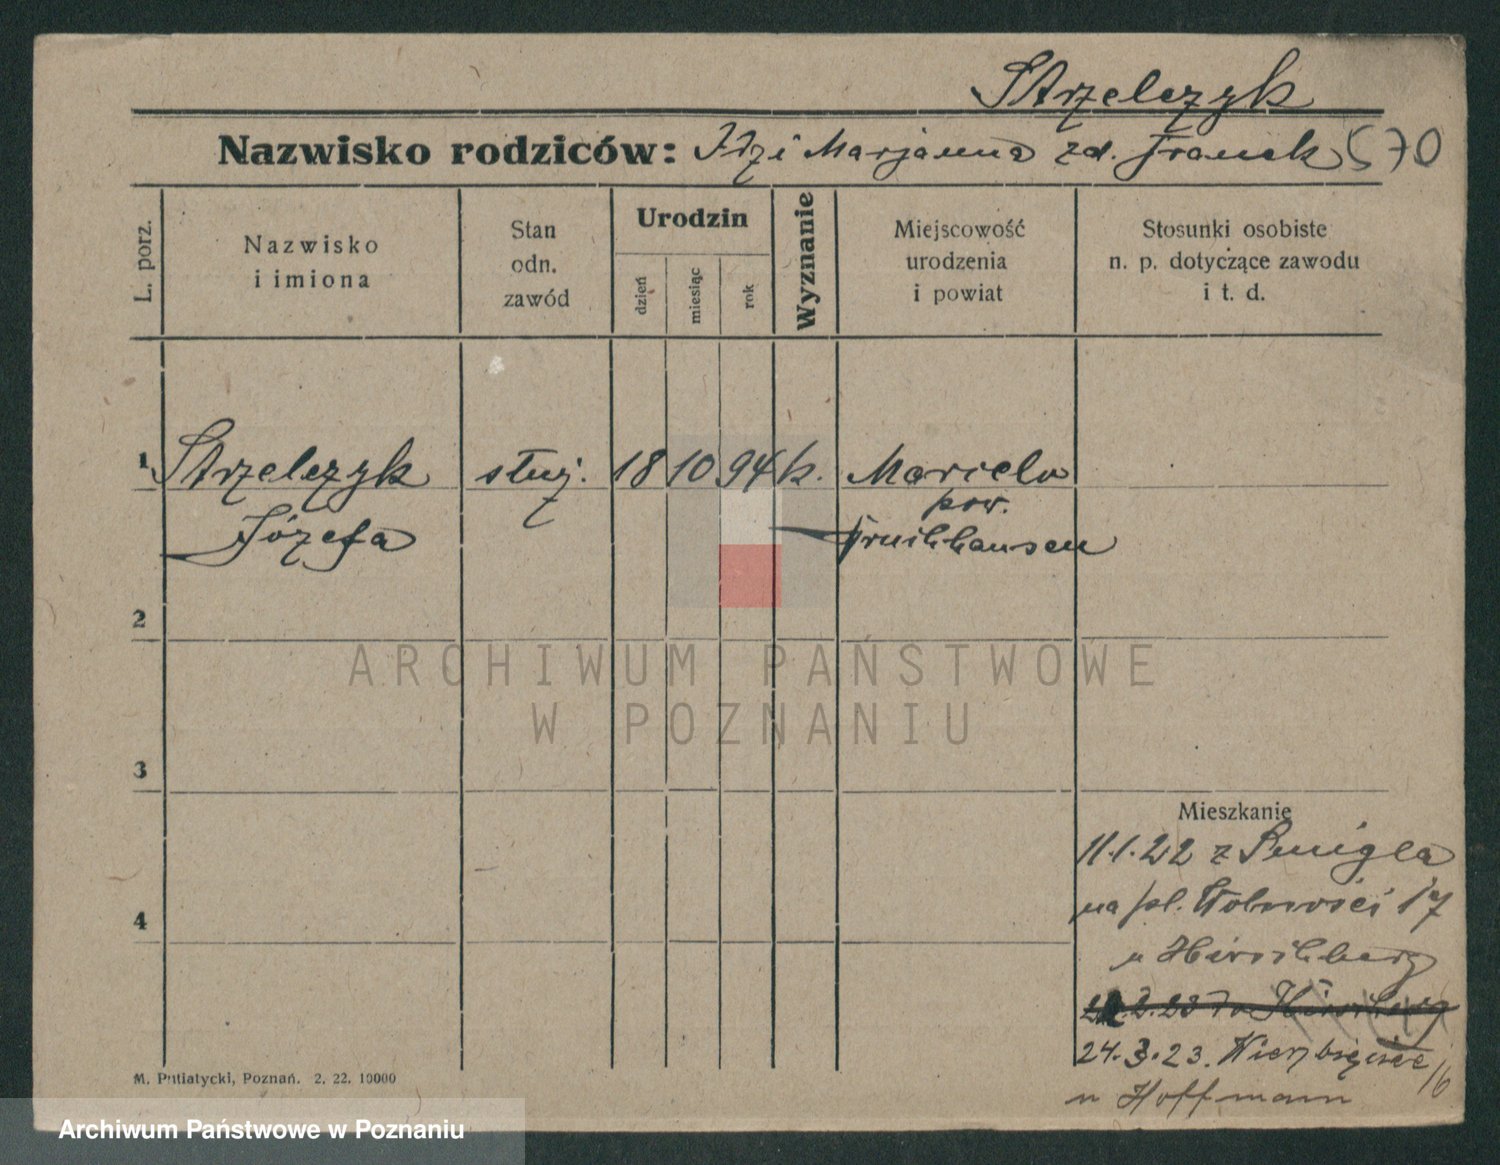 Strzelczyk
Nazwisko rodziców: Idzi Marjanna zd. Franek 570
L. porz.
Nazwisko
i imiona
Stan
odn.
zawód
Urodzin
dzień
miesiąc
rok
Wyznanie
Miejscowość
urodzenia
i powiat
Stosunki osobiste
n. p. dotyczące zawodu
i t. d.
1 Strzelczyk służ. 18 10 94 k.
Józefa
pow.
2
ARCHIWUM PAŃSTWOWE
W POZNANIU
3
4
Mieszkanie
11.1.22 z Śmigla
na pl. Wolności 17
u Hirschberg
24.3.23.
u Hoffmann
M. Putiatycki, Poznań. 2. 22. 10000
Archiwum Państwowe w Poznaniu